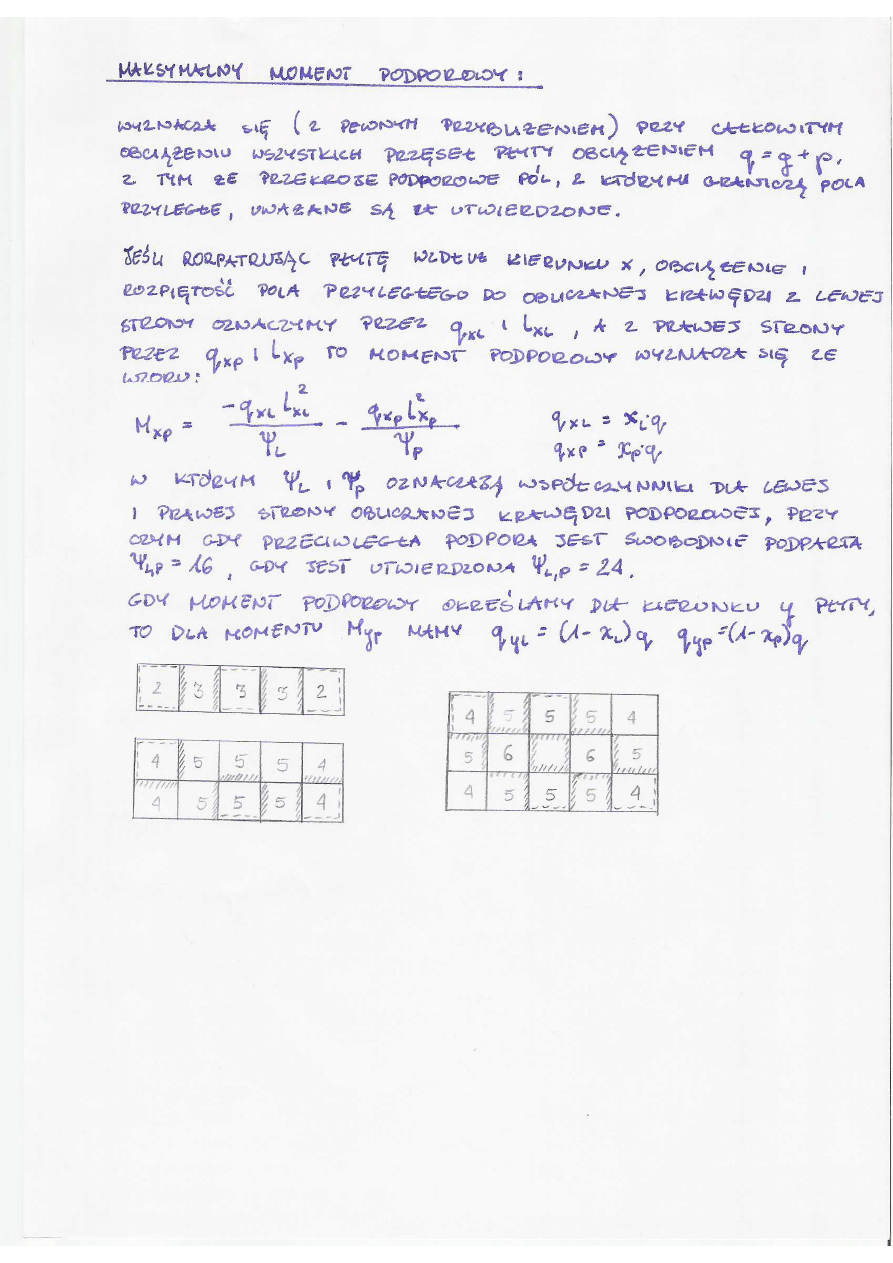 MAKSYMALNY MOMENT PODPOROWY:
WYZNACZA SIĘ (Z PEWNYM PRZYBLIŻENIEM) PRZY CAŁKOWITYM
OBCIĄŻENIU WSZYSTKICH PRZĘSEŁ PŁYTY OBCIĄŻENIEM q = g + p,
Z TYM ŻE PRZEKROJE PODPOROWE PÓL, Z KTÓRYMI GRANICZĄ POLA
PRZYLEGŁE, UWAŻANE SĄ ZA UTWIERDZONE.
JEŚLI ROZPATRUJĄC PŁYTĘ WZDŁUŻ KIERUNKU X, OBCIĄŻENIE I
ROZPIĘTOŚĆ POLA PRZYLEGŁEGO DO OBLICZANEJ KRAWĘDZI Z LEWEJ
STRONY OZNACZYMY PRZEZ q_xL I L_xL, A Z PRAWEJ STRONY
PRZEZ q_xp I L_xp TO MOMENT PODPOROWY WYZNACZA SIĘ ZE
WZORU:
M_xp = -q_xL L_xL² / Ψ_L - q_xp L_xp² / Ψ_p q_xL = χ_L·q
q_xp = χ_p·q
W KTÓRYM Ψ_L I Ψ_p OZNACZAJĄ WSPÓŁCZYNNIKI DLA LEWEJ
I PRAWEJ STRONY OBLICZANEJ KRAWĘDZI PODPOROWEJ, PRZY
CZYM GDY PRZECIWLEGŁA PODPORA JEST SWOBODNIE PODPARTA
Ψ_L,P = 16, GDY JEST UTWIERDZONA Ψ_L,P = 24.
GDY MOMENT PODPOROWY OKREŚLAMY DLA KIERUNKU Y PŁYTY,
TO DLA MOMENTU M_yp MAMY q_yL = (1 - χ_L)q q_yp = (1 - χ_p)q
2 3 3 3 2
4 5 5 5 4
4 5 5 5 4
4 5 5 5 4
5 6 6 5
4 5 5 5 4